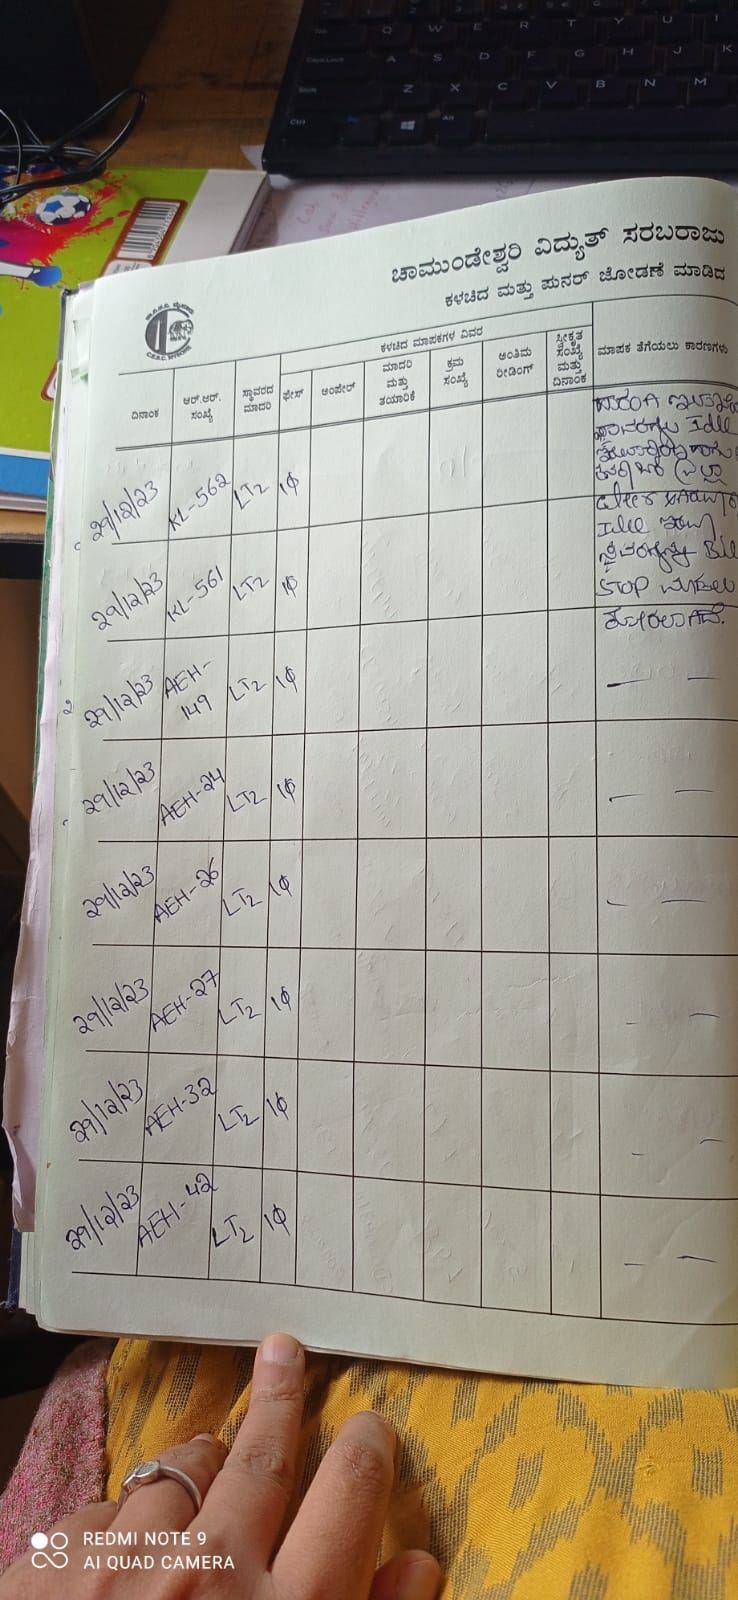 ಚಾಮುಂಡೇಶ್ವರಿ ವಿದ್ಯುತ್ ಸರಬರಾಜು
ಕಳಚಿದ ಮತ್ತು ಪುನರ್ ಜೋಡಣೆ ಮಾಡಿದ
ಕಳಚಿದ ಮಾಪಕಗಳ ವಿವರ
ದಿನಾಂಕ ಆರ್.ಆರ್. ಸಂಖ್ಯೆ ಸ್ಥಾವರದ ಮಾದರಿ ಫೇಸ್ ಅಂಪೇರ್ ಮಾದರಿ ಮತ್ತು ತಯಾರಿಕೆ ಕ್ರಮ ಸಂಖ್ಯೆ ಅಂತಿಮ ರೀಡಿಂಗ್ ಸ್ವೀಕೃತ ಸಂಖ್ಯೆ ಮತ್ತು ದಿನಾಂಕ ಮಾಪಕ ತೆಗೆಯಲು ಕಾರಣಗಳು
29/12/23 KL-562 LT2 1Φ
Idle
29/12/23 KL-561 LT2 1Φ
Idle
Bill
STOP ಮಾಡಲು
ಕೋರಲಾಗಿದೆ.
29/12/23 AEH-149 LT2 1Φ — —
29/12/23 AEH-24 LT2 1Φ — —
29/12/23 AEH-26 LT2 1Φ — —
29/12/23 AEH-27 LT2 1Φ — —
29/12/23 AEH-32 LT2 1Φ — —
29/12/23 AEH-42 LT2 1Φ — —
REDMI NOTE 9
AI QUAD CAMERA